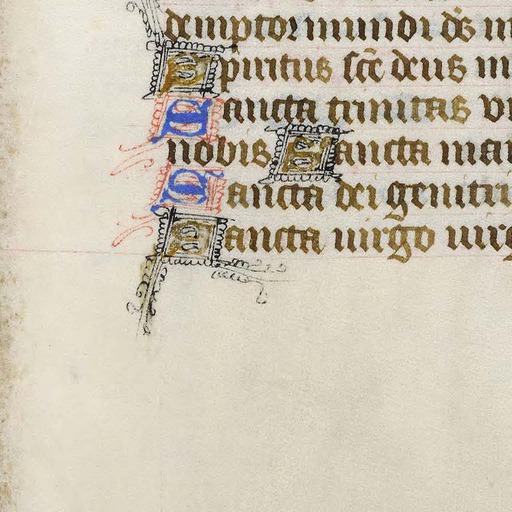 demptor mundi ds m
Spiritus sce deus m
Sancta trinitas v
nobis Sancta mar
Sancta dei genitri
Sancta uirgo uirg